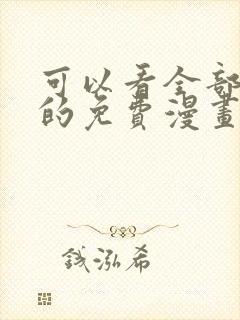 可以看全部
的免費漫畫
錢泓希